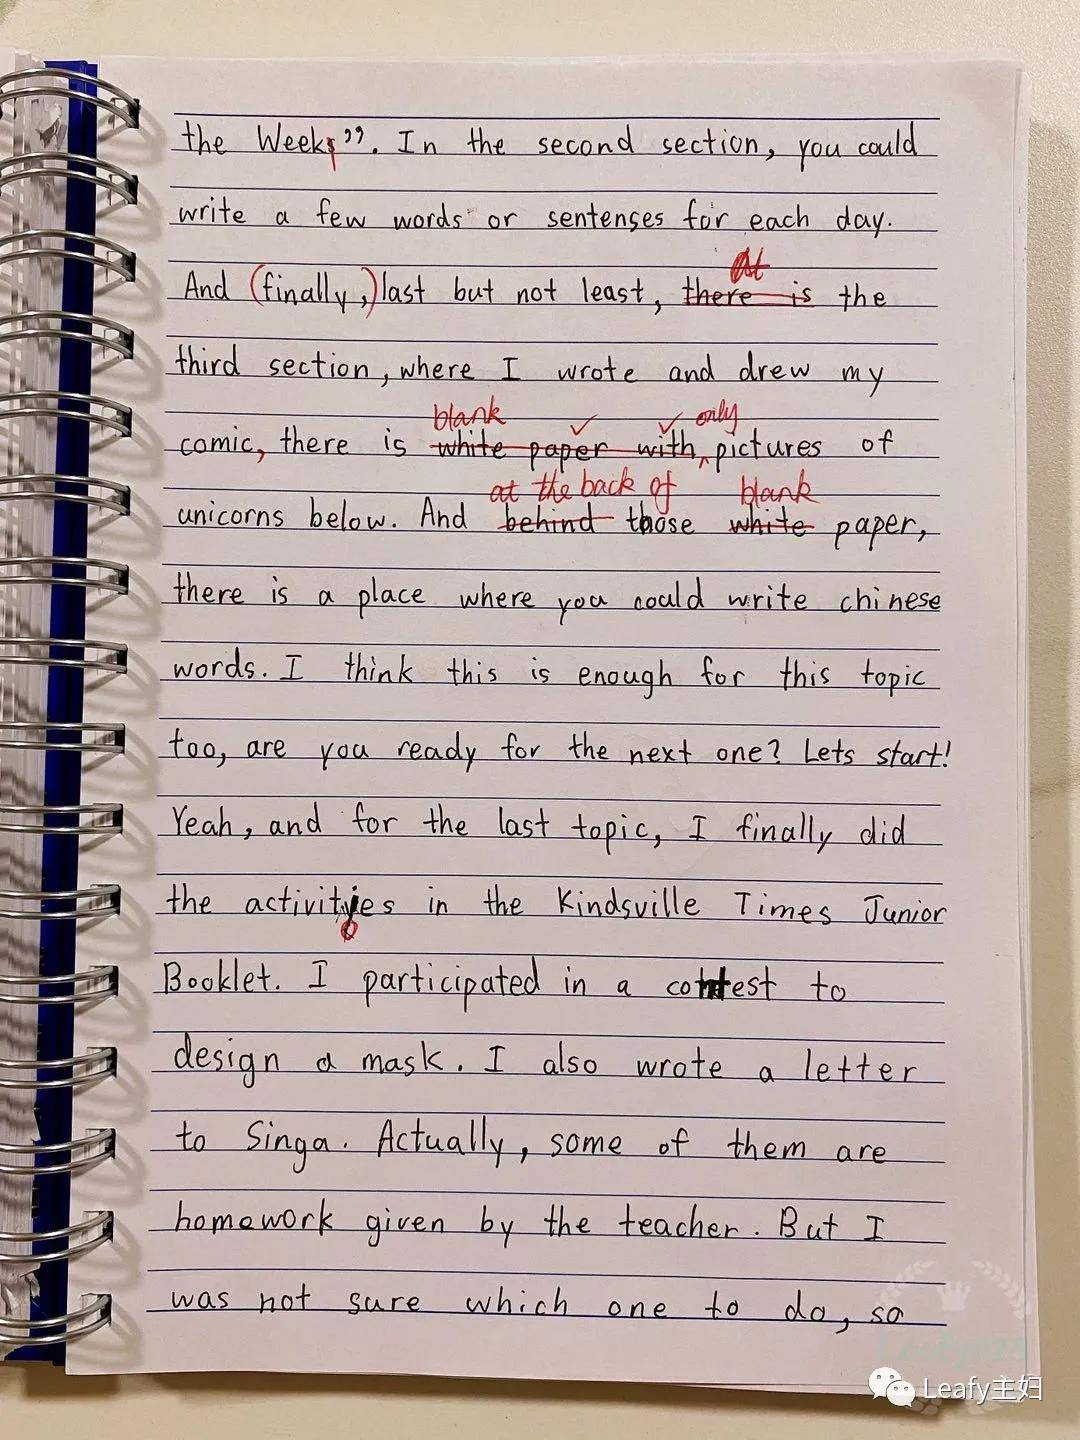 the Weeks”. In the second section, you could
write a few words or sentenses for each day.
At
And (finally,) last but not least, there is the
third section, where I wrote and drew my
blank ✓ ✓ only
comic, there is white paper with ^ pictures of
at the back of blank
unicorns below. And behind those white paper,
there is a place where you could write chinese
words. I think this is enough for this topic
too, are you ready for the next one? Lets start!
Yeah, and for the last topic, I finally did
the activities in the Kindsville Times Junior
Booklet. I participated in a contest to
design a mask. I also wrote a letter
to Singa. Actually, some of them are
homework given by the teacher. But I
was not sure which one to do, so
Leafy主妇